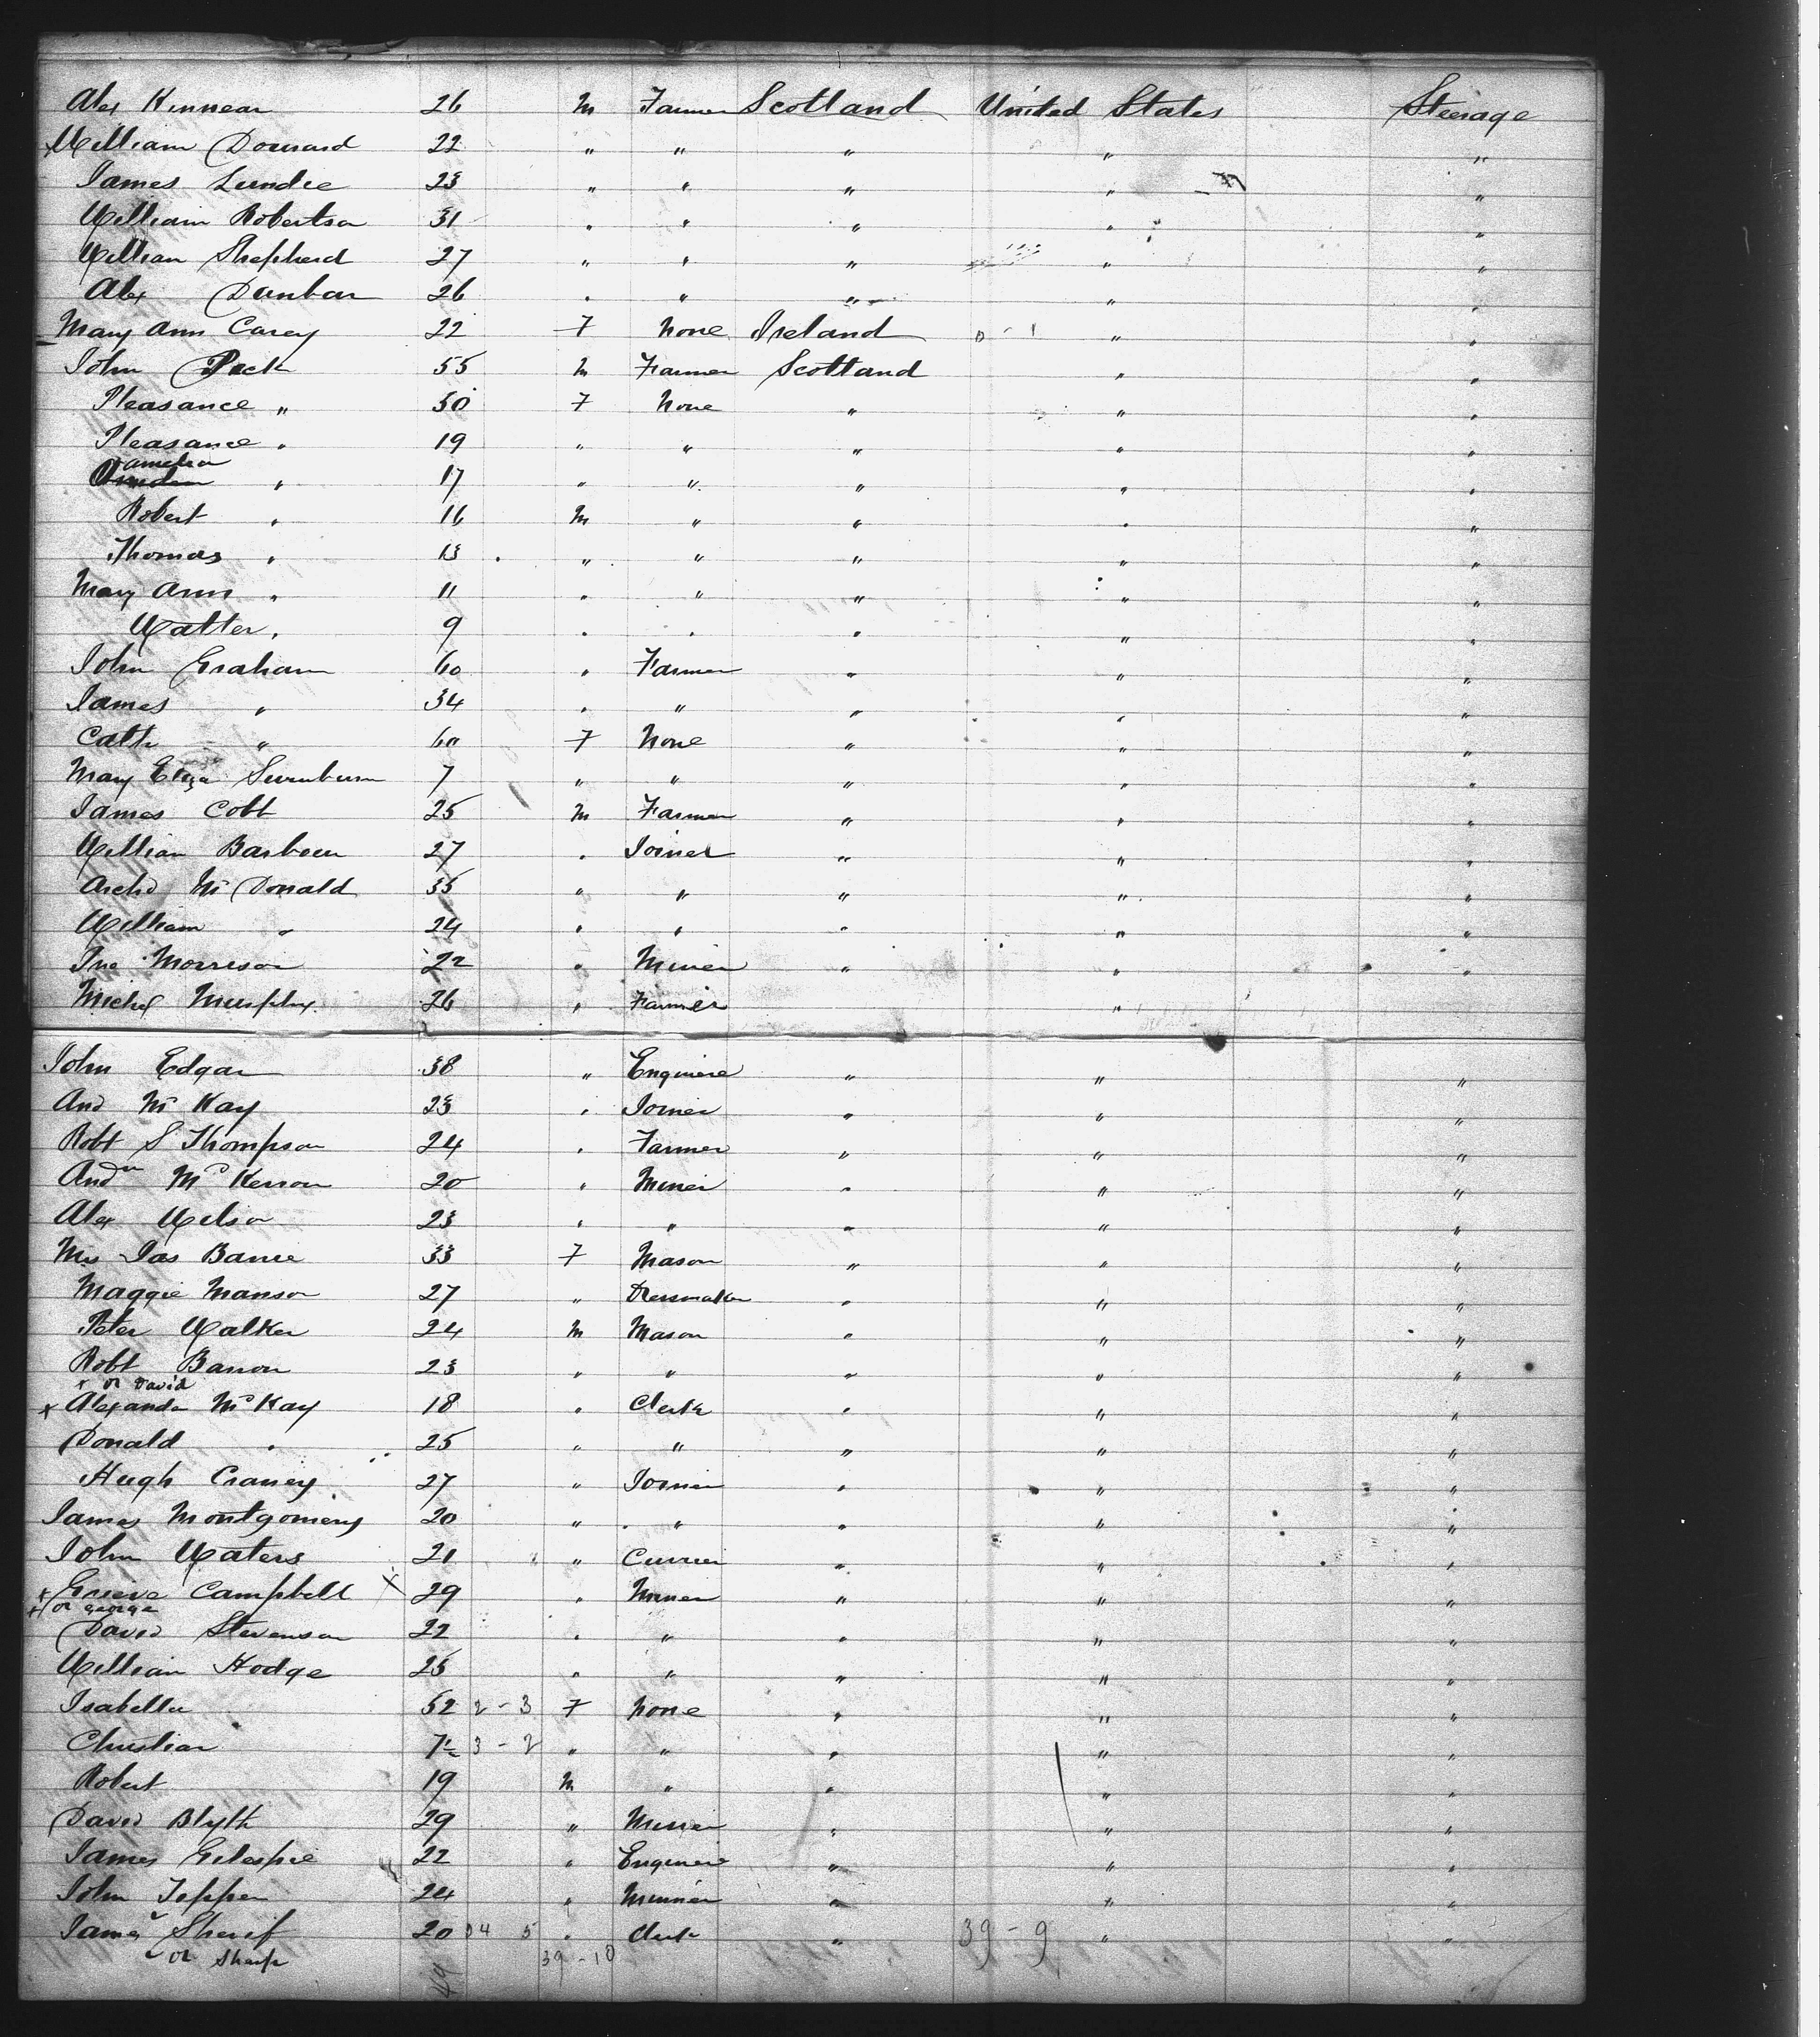 Alex Kinnear 26 M Farmer Scotland United States Steerage
William Dourard 22 " " " " "
James Lundie 23 " " " " "
William Robertson 31 " " " " "
William Shepherd 27 " " " " "
Alex Dunbar 26 " " " " "
Mary Ann Carey 22 F None Ireland 0 - 1 " "
John Peck 55 M Farmer Scotland " "
Pleasance " 50 F None " " "
Pleasance " 19 " " " " "
Pamelia
" 17 " " " " "
Robert " 16 M " " " "
Thomas " 13 " " " " "
Mary Ann " 11 " " " " "
Walter " 9 " " " " "
John Graham 60 " Farmer " " "
James " 34 " " " " "
Cath " 60 F None " " "
Mary Eliza 7 " " " " "
James Cobb 25 M Farmer " " "
William Barbour 27 " Joiner " " "
Archd Mc Donald 35 " " " " "
William " 24 " " " " "
Jno Morrison 22 " Miner " " "
Michel Murphy 26 " Farmer "
John Edgar 38 " Engineer " " "
And Mc Kay 23 " Joiner " " "
Robt S Thompson 24 " Farmer " " "
Andw Mc Kerron 20 " Miner " " "
Alex Wilson 23 " " " " "
Mrs Jas Barrie 33 F Mason " " "
Maggie Manson 27 " Dressmaker " " "
Peter Walker 24 M Mason " " "
Robt Barron 23 " " " " "
x or David
x Alexander McKay 18 " Clerk " " "
Donald " 25 " " " " "
Hugh Craney 27 " Joiner " " "
James Montgomery 20 " " " " "
John Waters 21 " Currier " " "
x Grieve Campbell x 29 " Miner " " "
x or George
David Stevenson 22 " " " " "
William Hodge 25 " " " " "
Isabella 52 2 - 3 F None " " "
Christian 7 3 - 2 " " " " "
Robert 19 M " " " "
David Blyth 29 " Miner " " "
James Gilespie 22 " Engineer " " "
John Jeppen 24 " Miner " " "
James Sherif 20 34 5 " Clerk " 39 - 9 "
or Sharp 39 - 10
49